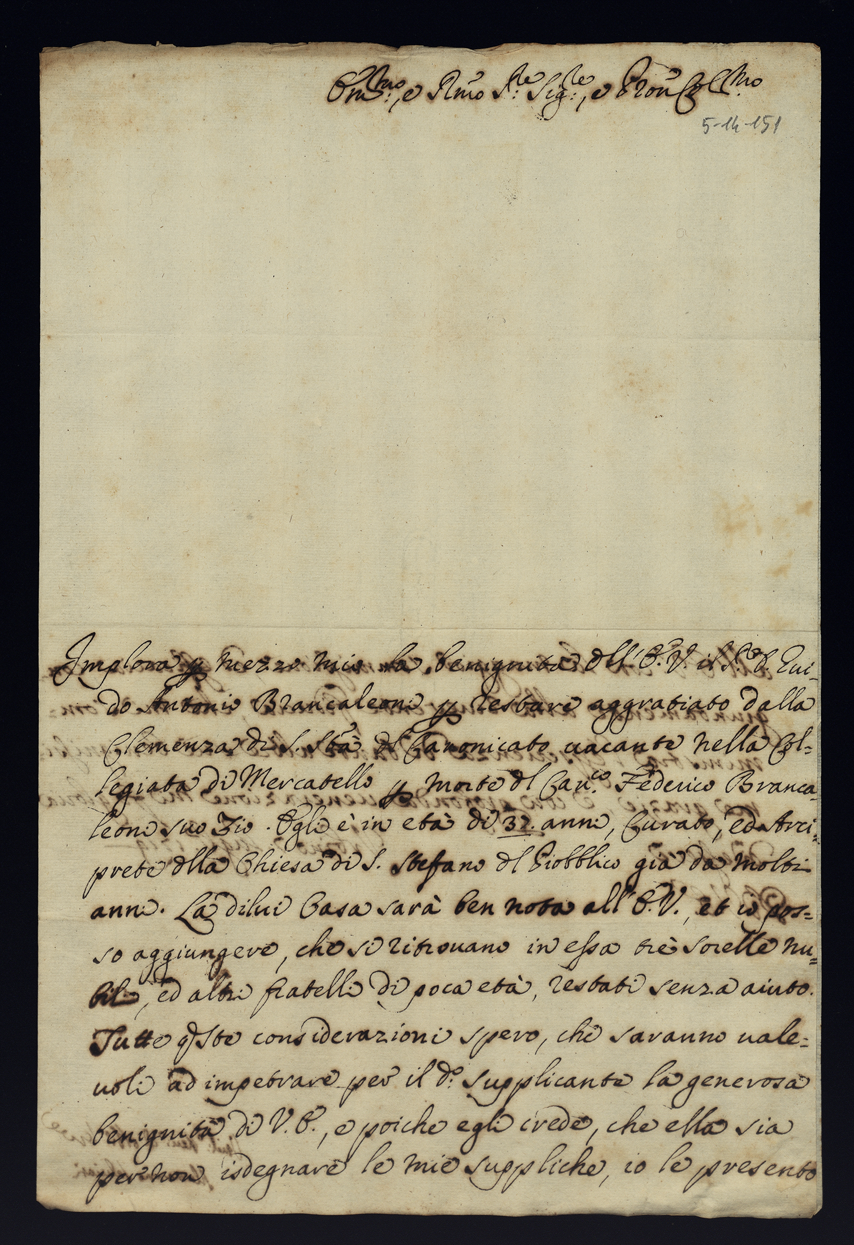 Em:mo, e R:mo S:re Sig:re, e Pron Col:mo
5-14-151
Implora p mezzo mio la benignità dell' E. V. il S.r D. Gui-
do Antonio Brancaleoni p restare aggratiato dalla
Clemenza di S. Stà del Canonicato vacante nella Col-
legiata di Mercatello p morte del Can.co Federico Branca-
leone suo Zio. Egli è in età di 32 anni, Curato, ed Arci-
prete della Chiesa di S. Stefano del Piobblico già da molti
anni. La dilui Casa sarà ben nota all' E. V., et io pos=
so aggiungere, che si ritrovano in essa trè sorelle nu=
bili, ed altri fratelli di poca età, restati senza aiuto.
Tutte qste considerazioni spero, che saranno vale=
voli ad impetrare per il d.o supplicante la generosa
benignità di V. E., e poiche egli crede, che ella sia
per non isdegnare le mie suppliche, io le presento